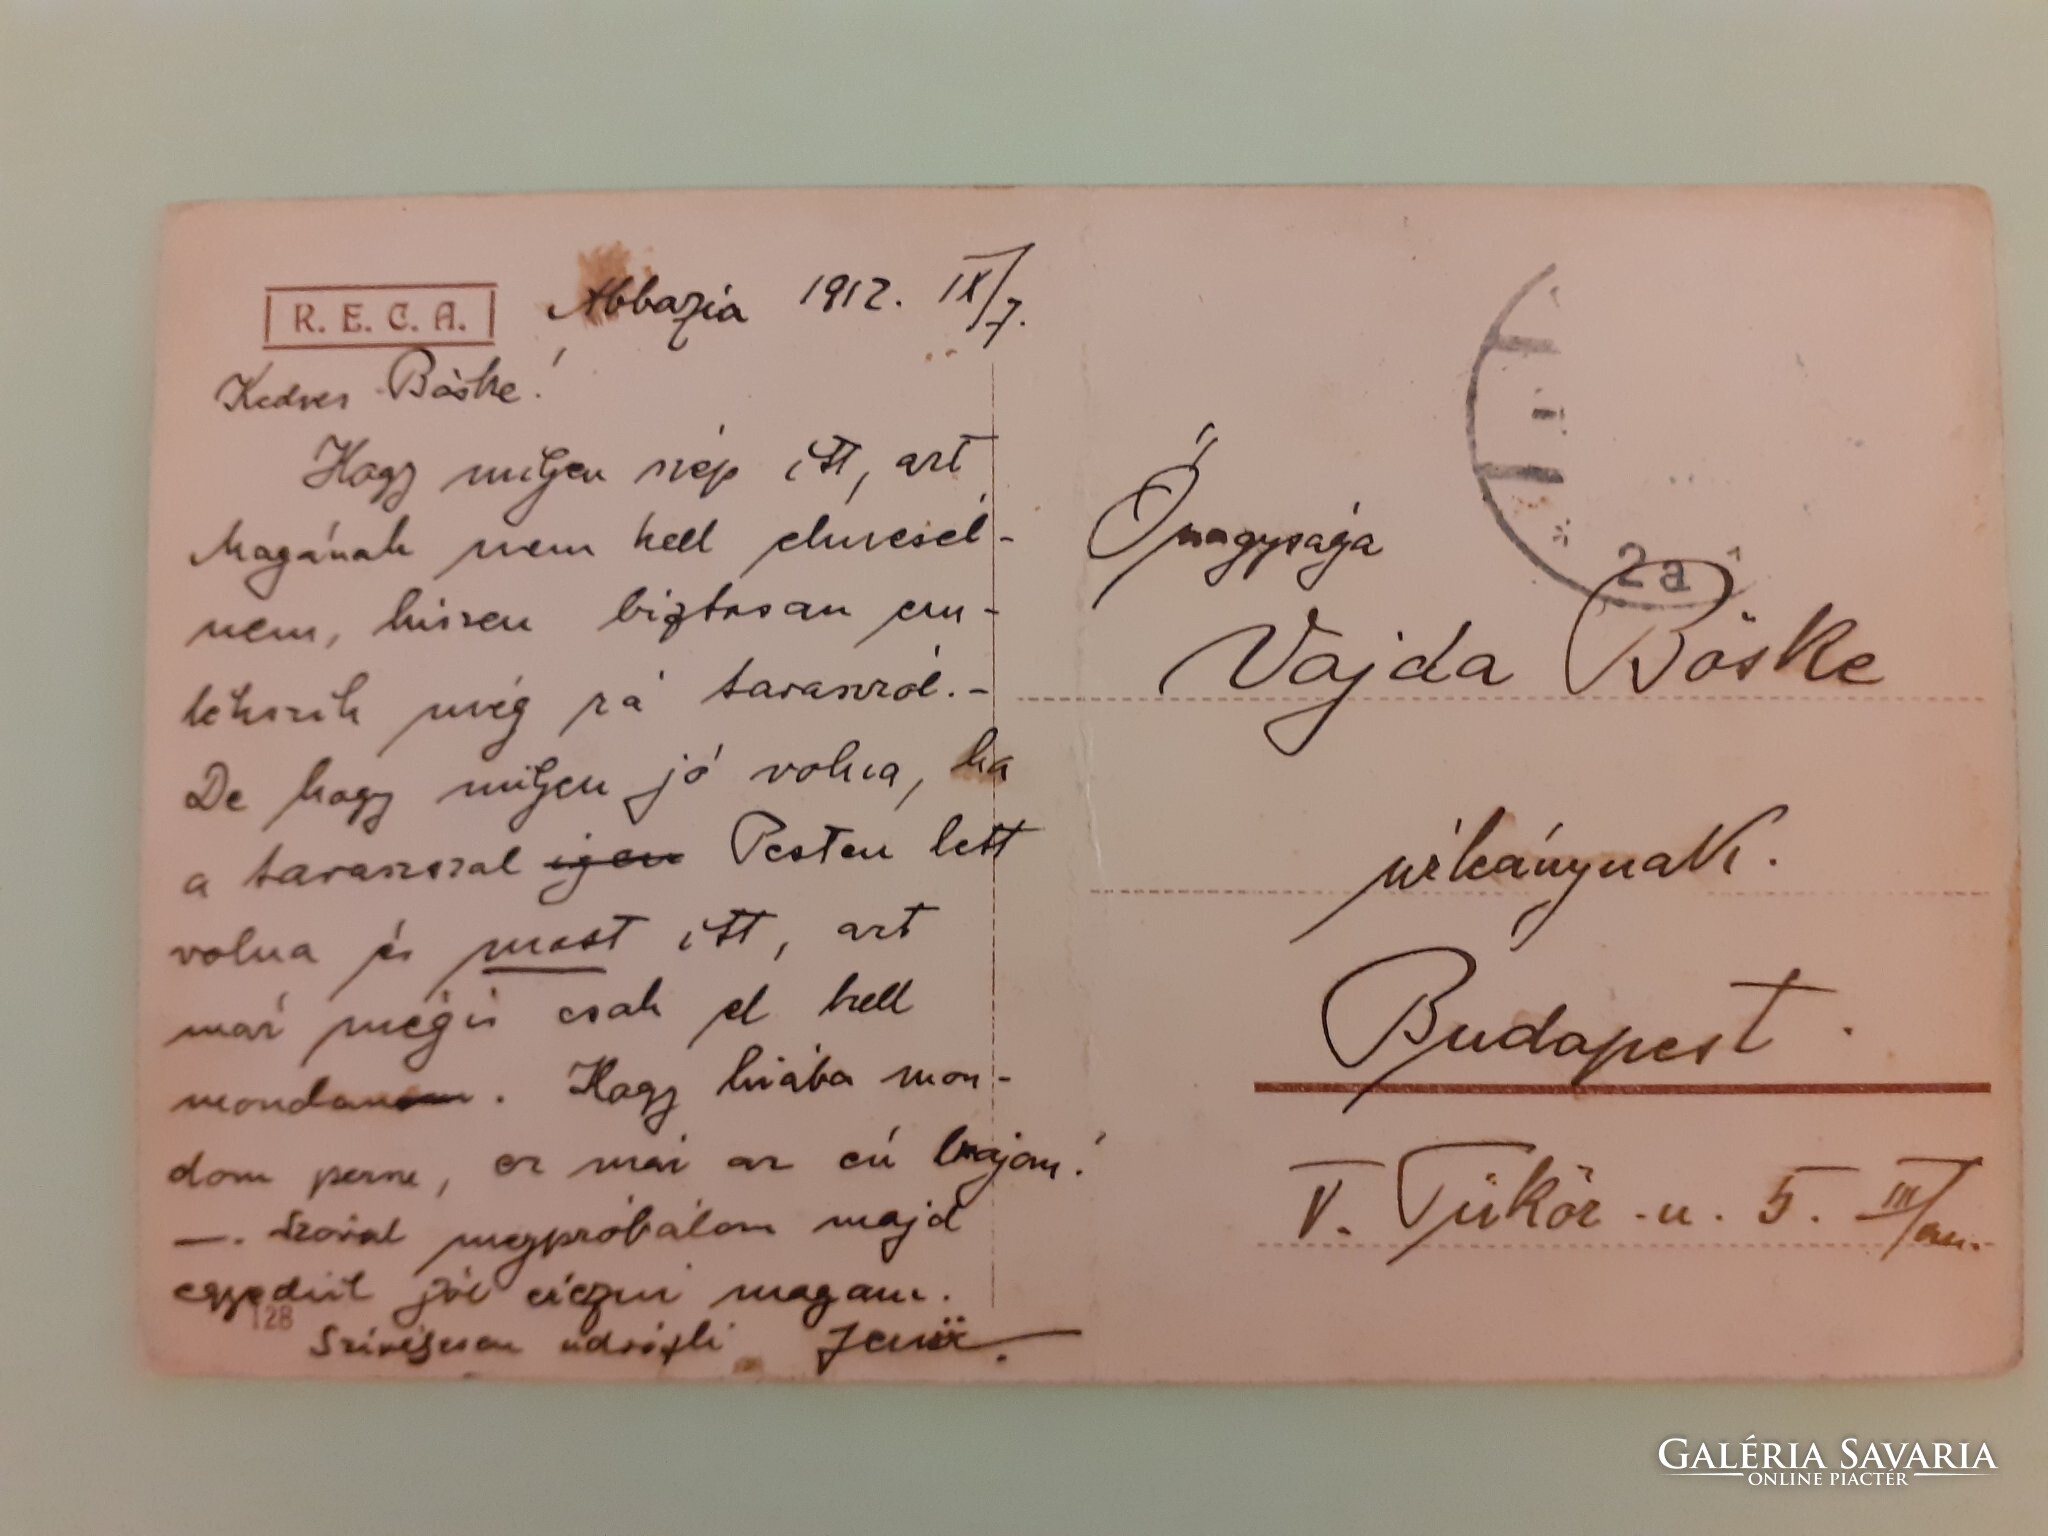 R. E. C. A.
Abbazia 1912. IX/7.
Kedves Böske!
Hogy milyen szép itt, azt
Magának nem kell elmesél-
nem, hiszen biztosan em-
lékszik még rá tavaszról.-
De hogy milyen jó volna, ha
a tavaszszal igen Pesten lett
volna és most itt, azt
már mégis csak el kell
mondanom. Hogy hiába mon-
dom persze, ez már az én bajom!
—. Szóval megpróbálom majd
egyedül jól érezni magam.
128
Szívélyesen üdvözli Jenő.
Őnagysága
Vajda Böske
úrleánynak.
Budapest.
V. Tükör-u. 5. III/em.
2a
GALÉRIA SAVARIA
ONLINE PIACTÉR